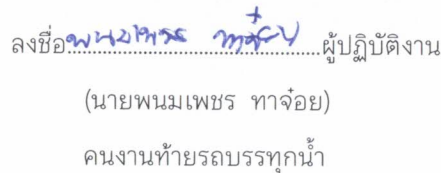 ลงชื่อ พนมเพชร ทาจ๋อย ผู้ปฏิบัติงาน
(นายพนมเพชร ทาจ๋อย)
คนงานท้ายรถบรรทุกน้ำ